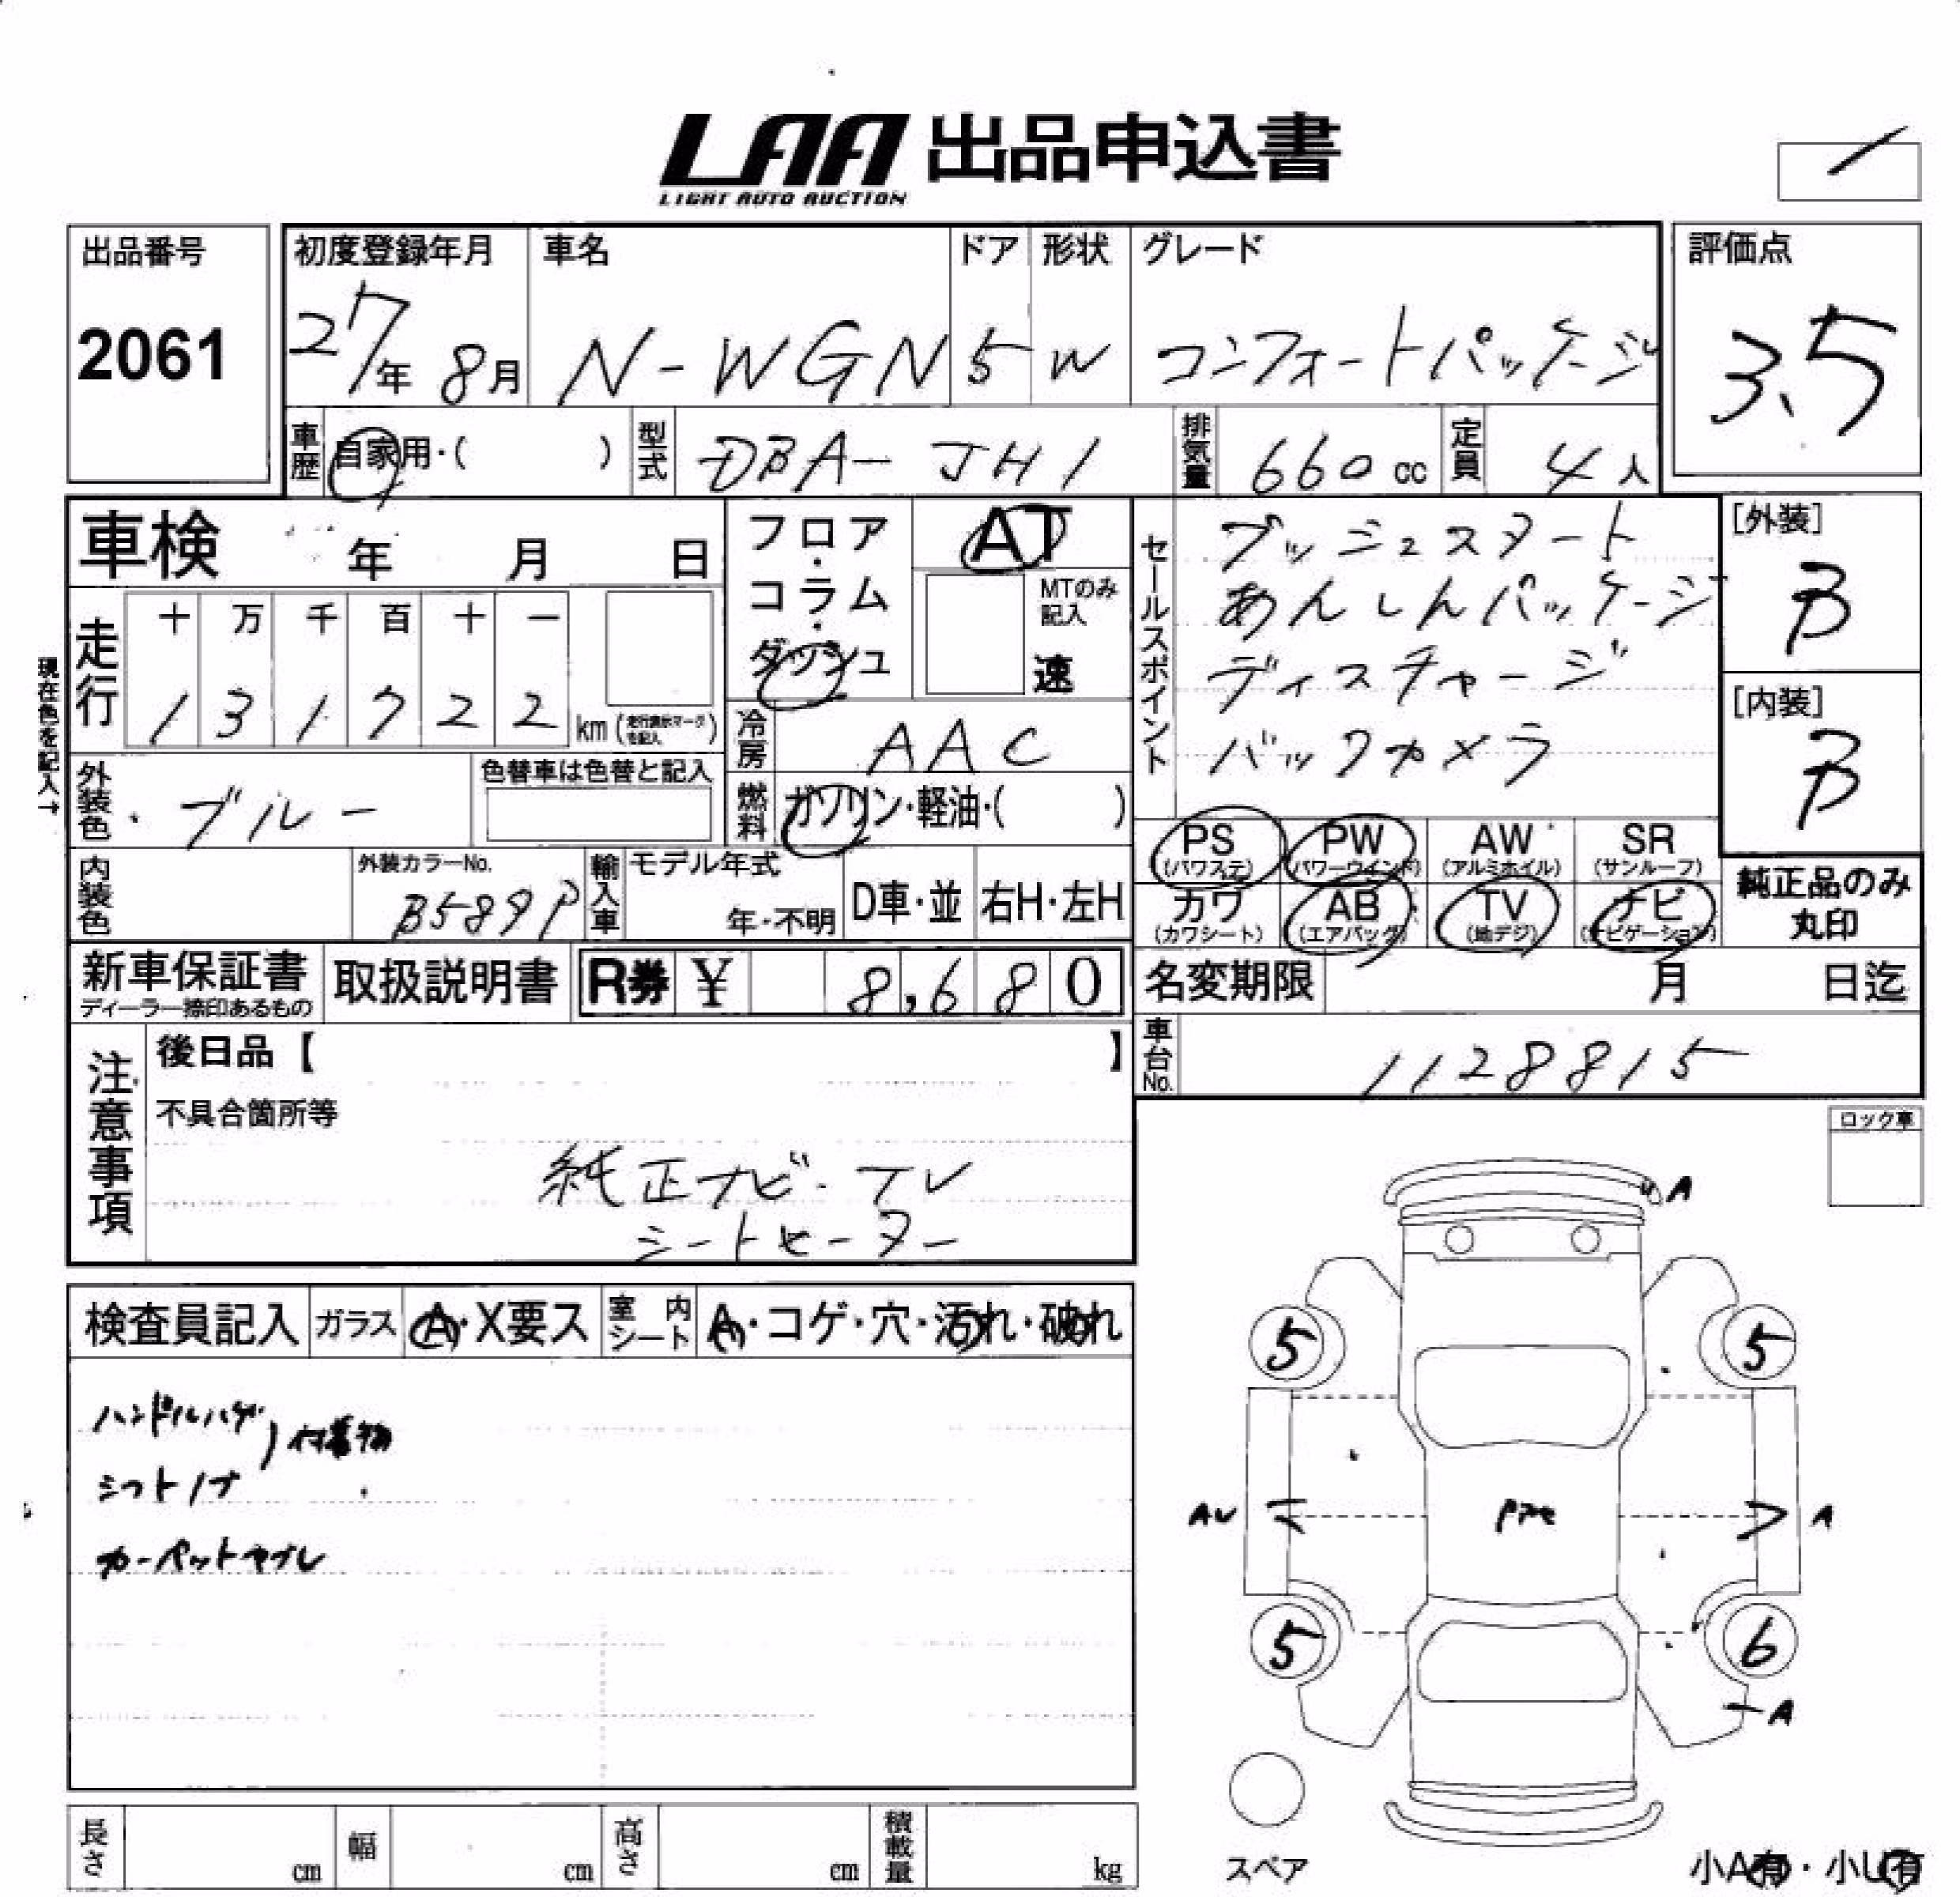 LAA 出品申込書
LIGHT AUTO AUCTION
出品番号
2061
初度登録年月
27年 8月
車名
N-WGN
ドア
5
形状
W
グレード
コンフォートパッケージ
評価点
3.5
車歴 自家用・( )
型式 DBA-JH1
排気量 660 cc
定員 4人
車検 年 月 日
フロア・コラム・ダッシュ
AT
MTのみ記入
速
セールスポイント
プッシュスタート
あんしんパッケージ
ディスチャージ
バックカメラ
[外装]
B
[内装]
B
現在色を記入→
走行
十 万 千 百 十 一
1 3 1 7 2 2 km (走行表示マークを記入)
冷房 AAC
外装色 ブルー
色替車は色替と記入
燃料 ガソリン・軽油・( )
PS (パワステ)
PW (パワーウインド)
AW (アルミホイル)
SR (サンルーフ)
カワ (カワシート)
AB (エアバッグ)
TV (地デジ)
ナビ (ナビゲーション)
純正品のみ丸印
内装色
外装カラーNo.
B589P
輸入車
モデル年式
年・不明
D車・並
右H・左H
新車保証書
ディーラー捺印あるもの
取扱説明書
R券 ¥ 8,680
名変期限 月 日迄
車台No. 1128815
注意事項
後日品【 】
不具合箇所等
純正ナビ・TV
シートヒーター
ロック車
検査員記入
ガラス A・X要ス
室内シート A・コゲ・穴・汚れ・破れ
ハンドルハゲ
付着物
シフトノブ
カーペットヤブレ
A
5
5
AU
A
5
6
A
スペア
長さ cm
幅 cm
高さ cm
積載量 kg
小A有・小U有